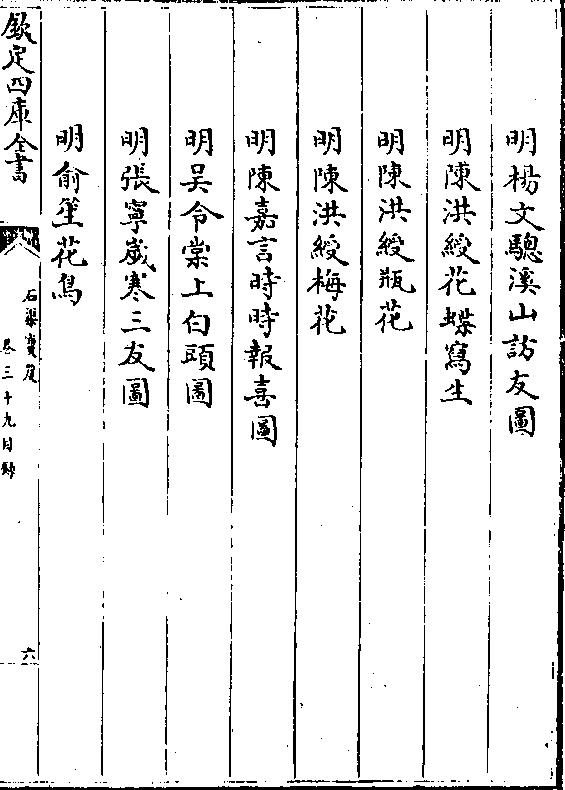 明楊文驄溪山訪友圖
明陳洪綬花蝶寫生
明陳洪綬瓶花
明陳洪綬梅花
明陳嘉言時時報喜圖
明吴令棠上白頭圖
明張寧歲寒三友圖
明俞笙花鳥
欽定四庫全書
石渠寶笈
卷三十九目錄
六